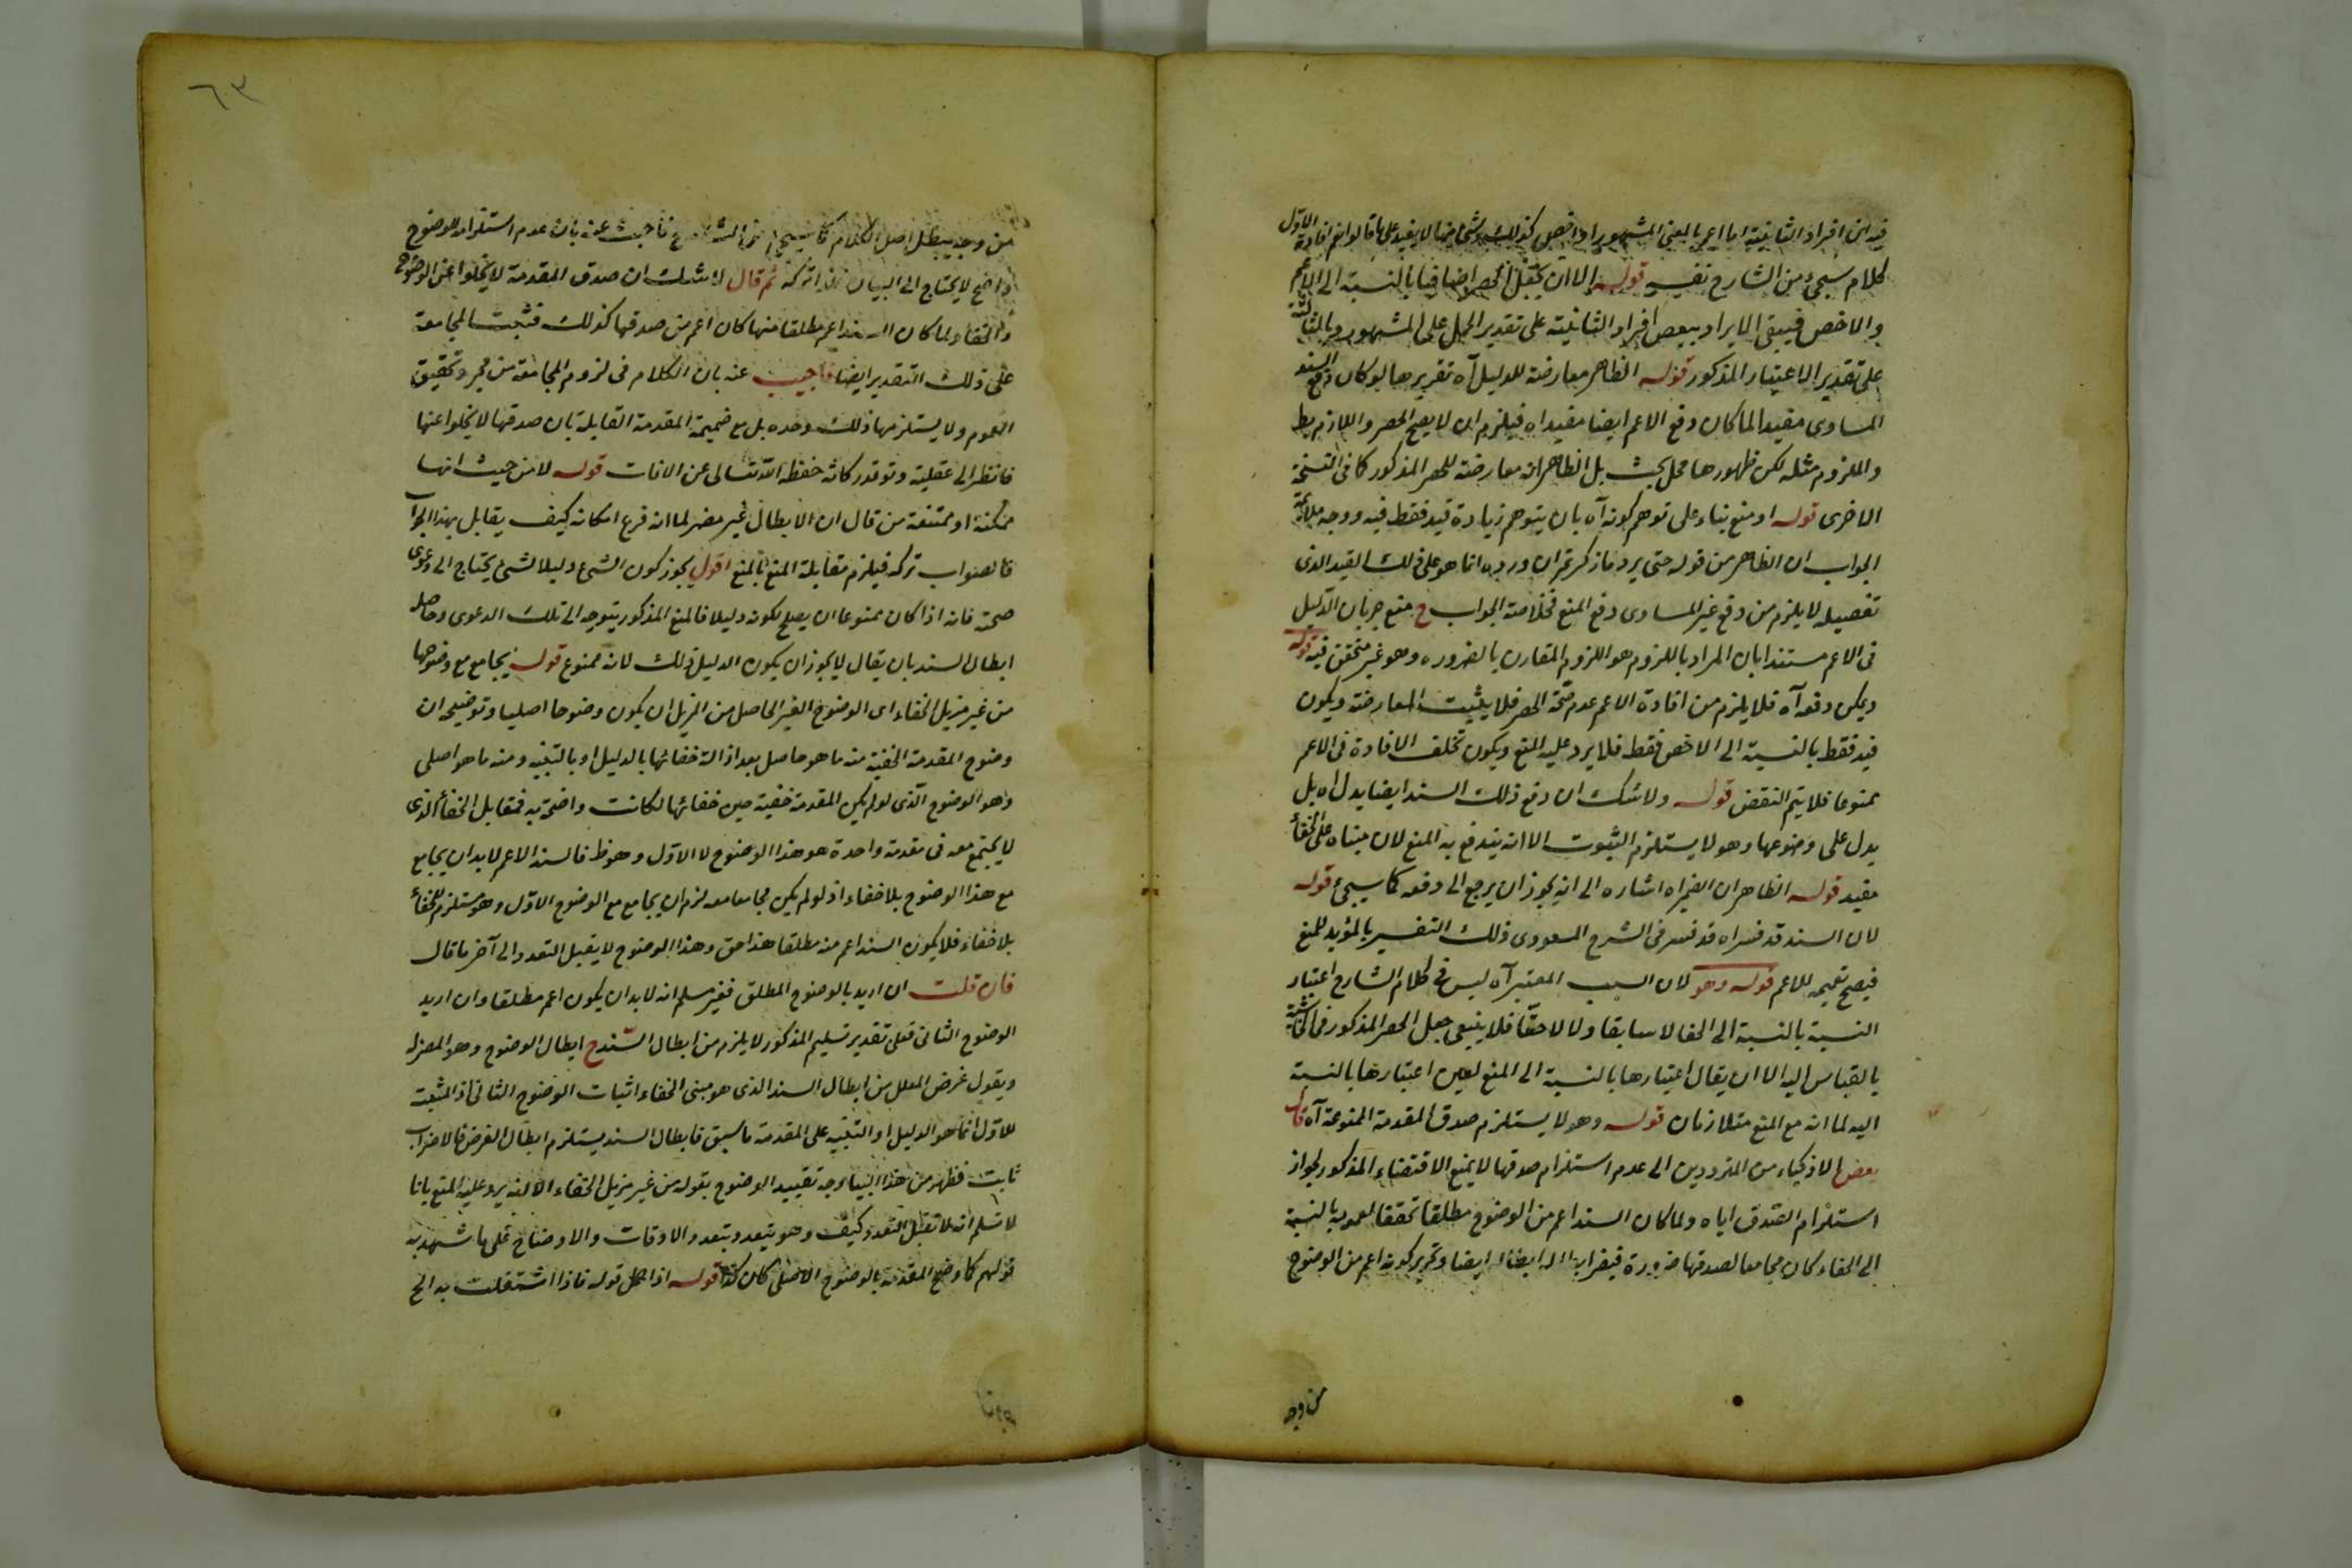 فيه ان افراد الثانية اما اعم بالمعنى المشهور او اخص كذلك وشئ منها لا يفيد على ما قالوا نعم افادة الاول
كلام سيجيء من الشارح نفسه قوله الا ان يجعل الحصر اضافيا بالنسبة الى الاعم
والاخص فيبقى الايراد ببعض افراد الثانية على تقدير الحمل على المشهور وبالثالثة
على تقدير الاعتبار المذكور قوله الظاهر معارضة للدليل آه تقريرها لو كان دفع السند
المساوى مفيدا لما كان دفع الاعم ايضا مفيدا ه فيلزم ان لا يصح الحصر واللازم بط
والملزوم مثله لكن ظهورها محل بحث بل الظاهر انه معارضة للحصر المذكور كما فى النسخة
الاخرى قوله او منع بناء على توهم كونه آه بان يتوهم زيادة قيد فقط فيه ووجه ملايمة
الجواب ان الظاهر من قوله حتى يرد ما ذكرتم ان وروده انما هو على ذلك القيد الذى
تفصيله لا يلزم من دفع غير المساوى دفع المنع فخلاصة الجواب ح منع جريان الدليل
فى الاعم مستندا بان المراد باللزوم هو اللزوم المقارن بالضروره وهو غير متحقق فيه قوله
ويمكن دفعه آه فلا يلزم من افادة الاعم عدم صحة الحصر فلا يثبت المعارضة ويكون
قيد فقط بالنسبة الى الاخص فقط فلا يرد عليه المنع ويكون تخلف الافادة فى الاعم
ممنوعا فلا يتم النقض قوله ولا شك ان دفع ذلك السند ايضا يدل اه بل
يدل على وضوحها وهو لا يستلزم الثبوت الا انه يندفع به المنع لان مبناه على الخفاء
مفيد قوله الظاهر ان الضمير اه اشاره الى انه يجوز ان يرجع الى دفعه كما سيجيء قوله
لان السند قد فسراه قد فسر فى الشرح المسعودى ذلك التفسير بالمؤيد للمنع
فيصح تعميمه للاعم قوله وهو لان السبب المعتبر آه ليس فى كلام الشارح اعتبار
النسبة بالنسبة الى الخفا لا سابقا ولا لاحقا فلا ينبغى جعل الحصر المذكور فى الحاشية
بالقياس اليه الا ان يقال اعتبارها بالنسبة الى المنع لعين اعتبارها بالنسبة
اليه لما انه مع المنع متلازمان قوله وهو لا يستلزم صدق المقدمة الممنوعة آه قال
بعض الاذكياء من المترددين الى عدم استلزام صدقها لا يمنع الاقتضاء المذكور لجواز
استلزام الصدق اياه ولما كان السند اعم من الوضوح مطلقا تحققا لعمومه بالنسبة
الى الخفاء كان مجامعا لصدقها ضرورة فيضر ابطاله ايضا وتحرير كونه اعم من الوضوح
من وجه
٦٣
من وجه يبطل اصل الكلام كما سيجيء من الشارح فاجبت عنه بان عدم استلزامه للوضوح
واضح لا يحتاج الى البيان فلذا تركه ثم قال لا شك ان صدق المقدمة لا يخلوا عن الوضوح
والخفاء ولما كان السند اعم مطلقا منها كان اعم من صدقها كذلك فثبت المجامعة
على ذلك التقدير ايضا فاجيب عنه بان الكلام فى لزوم المجامعة من مجرد تحقيق
العموم ولا يستلزمها ذلك وحده بل مع ضميمة المقدمة القايلة بان صدقها لا يخلوا عنها
فانظر الى عقليته وتوقد ركائه حفظه الله تعالى عن الافات قوله لا من حيث انها
ممكنة او ممتنعة من قال ان الابطال غير مضر لما انه فرع امكانه كيف يقابل بهذا الجواب
فالصواب تركه فيلزم مقابلة المنع بالمنع اقول يجوز كون الشئ دليلا لشئ يحتاج الى دعوى
صحته فانه اذا كان ممنوعا ان يصلح لكونه دليلا فالمنع المذكور يتوجه الى تلك الدعوى وحاصله
ابطال السند بان يقال لا يجوز ان يكون الدليل ذلك لانه ممنوع قوله يجامع مع وضوحها
من غير مزيل الخفاء اى الوضوح الغير الحاصل من المزيل ان يكون وضوحا اصليا وتوضيحه ان
وضوح المقدمة الخفية منه ما هو حاصل بعد ازالة خفائها بالدليل او بالتنبيه ومنه ما هو اصلى
وهو الوضوح الذى لو لم يكن المقدمة خفية حين خفائها لكانت واضحة به فمقابل الخفاء الذى
لا يجتمع معه فى مقدمة واحدة هو هذا الوضوح لا الاول وهو ظ فالسند الاعم لا بد ان يجامع
مع هذا الوضوح بلا خفاء اذ لو لم يكن مجامعا معه لزم ان يجامع مع الوضوح الاول وهو مستلزم للخفاء
بلا خفاء فلا يكون السند اعم منه مطلقا هذا حق وهذا الوضوح لا يقبل التعدد الى آخر ما قال
فان قلت ان اريد بالوضوح المطلق فغير مسلم انه لا بد ان يكون اعم مطلقا وان اريد
الوضوح الثانى فعلى تقدير تسليم المذكور لا يلزم من ابطال السند ح ابطال الوضوح وهو المضر له
ويقول غرض المعلل من ابطال السند الذى هو مبنى الخفاء اثبات الوضوح الثانى اذ المثبت
للاول انما هو الدليل او التنبيه على المقدمة ما سبق فابطال السند يستلزم ابطال الغرض فالاضراب
ثابت فظهر من هذا البيان وجه تقييد الوضوح بقوله من غير مزيل الخفاء الا انه يرد عليه المنع بانا
لا نسلم انه لا تقبل التعدد كيف وهو يتعدد بتعدد الاوقات والاوضاع على ما شهد به
قولهم كما وضح المقدمة بالوضوح الاصلى كان كذا قوله اذا حمل قوله فاذا اشتغلت به الخ